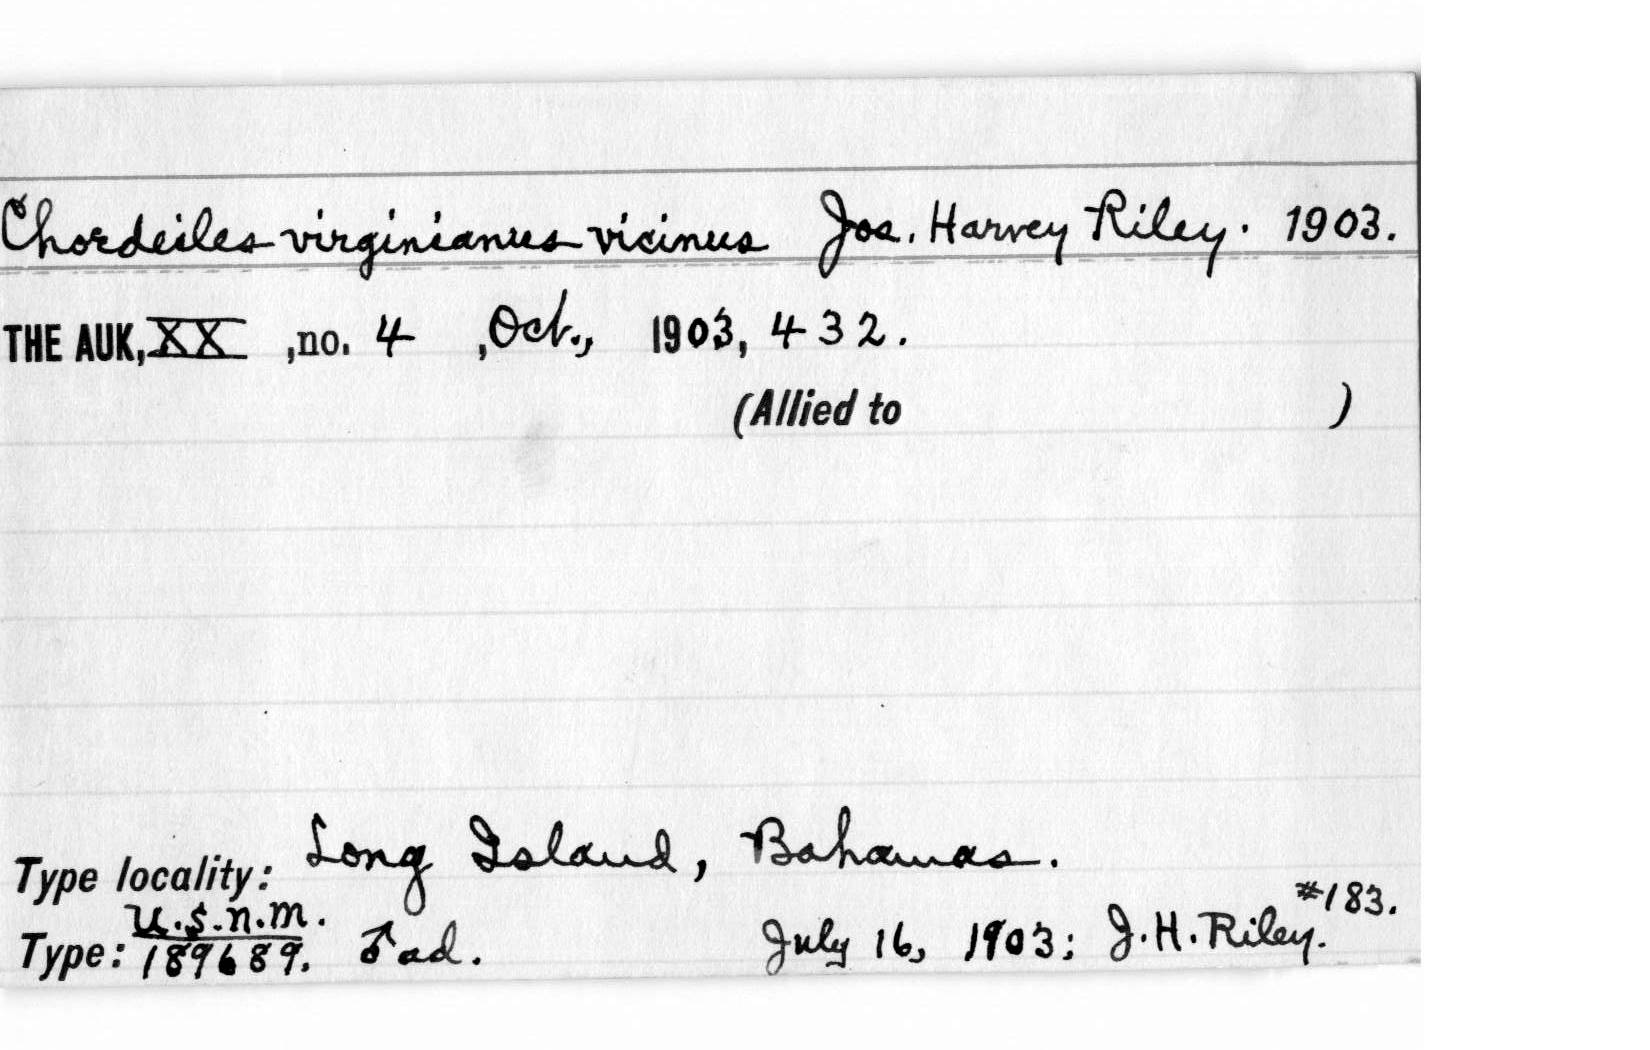 Chordeiles virginianus vicinus Jos. Harvey Riley. 1903.
THE AUK, XX ,no. 4 ,Oct., 1903, 432.
(Allied to )
Type locality: Long Island, Bahamas.
U.S.N.M. #183.
Type: 189689. ♂ ad. July 16, 1903; J.H. Riley.